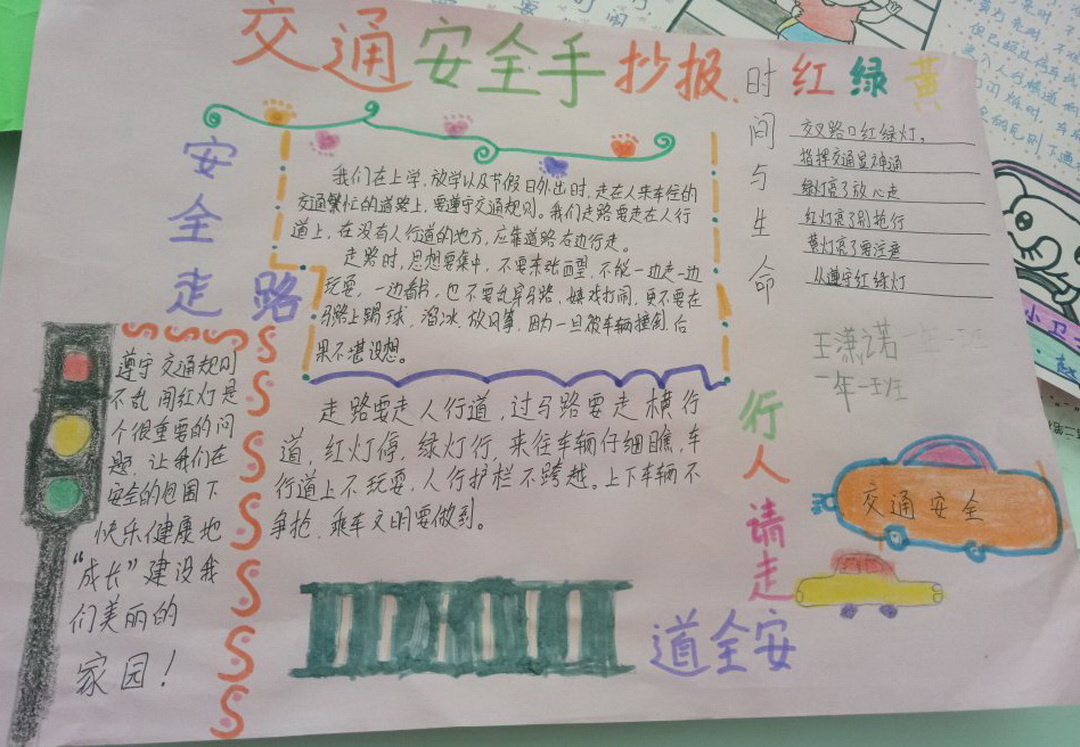 交通安全手抄报
时间与生命
红绿黄
交叉路口红绿灯,
指挥交通显神通
绿灯亮了放心走
红灯亮了别抢行
黄灯亮了要注意
从遵守红绿灯
安全走路
我们在上学、放学以及节假日外出时,走在人来车往的
交通繁忙的道路上,要遵守交通规则。我们走路要走在人行
道上,在没有人行道的地方,应靠道路右边行走。
走路时,思想要集中,不要东张西望,不能一边走一边
玩耍,一边看书,也不要乱穿马路、嬉戏打闹,更不要在
马路上踢球、溜冰、放风筝,因为一旦被车辆撞倒,后
果不堪设想。
王潇诺
一年一班
遵守交通规则
不乱闯红灯是
个很重要的问
题,让我们在
安全的包围下
快乐健康地
“成长”建设我
们美丽的
家园!
走路要走人行道,过马路要走横行
道,红灯停,绿灯行,来往车辆仔细瞧,车
行道上不玩耍,人行护栏不跨越。上下车辆不
争抢,乘车文明要做到。
行人请走
道全安
交通安全
小卫士